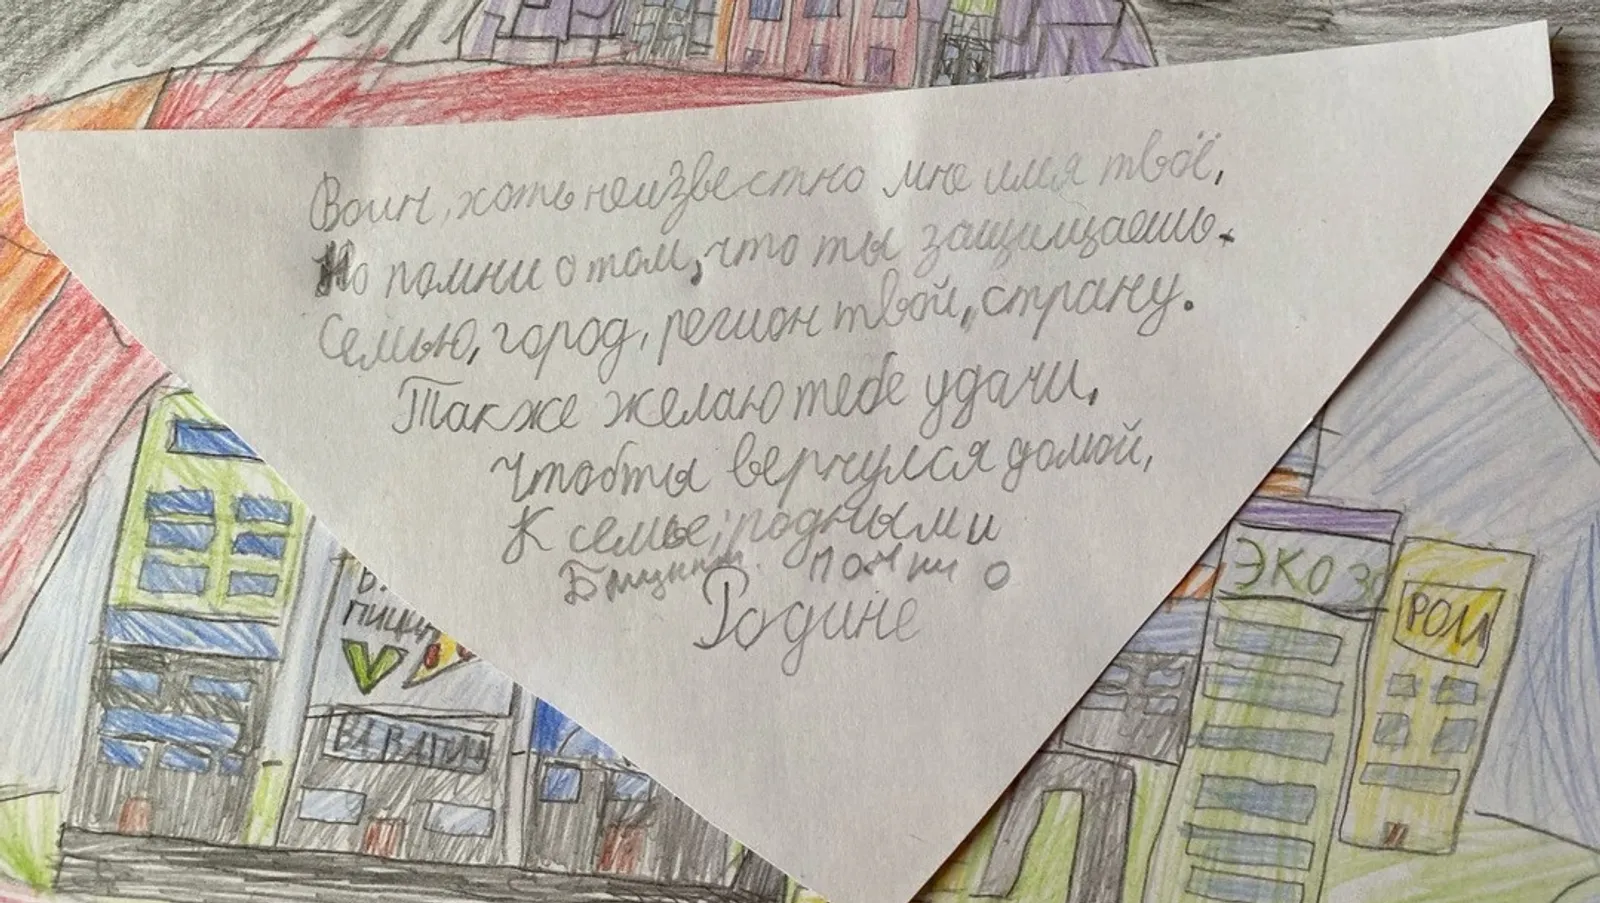 Воин, хоть неизвестно мне имя твоё,
Но помни о том, что ты защищаешь.
Семью, город, регион твой, страну.
Также желаю тебе удачи,
чтоб ты вернулся домой,
К семье, родным и
помни о
Родине
ПИЦЦ
ЭКО
РОЛЛ